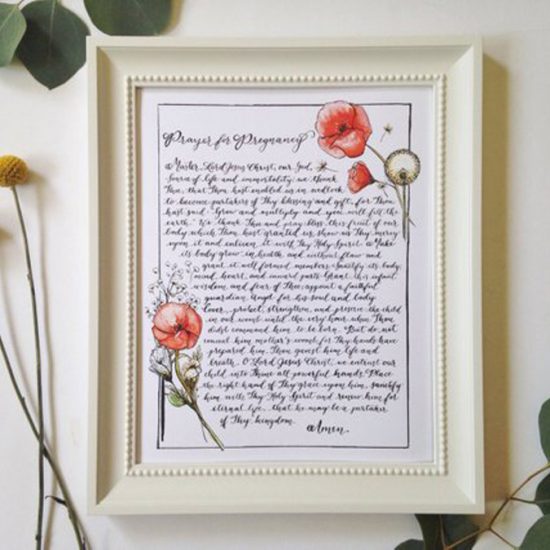 Prayer for Pregnancy
Master, Lord Jesus Christ, our God,
Source of life and immortality, we thank
Thee, that Thou hast enabled us in wedlock
to become partakers of Thy blessing and gift; for Thou
hast said: "Grow and multiply and you will fill the
earth." We thank Thee and pray: bless this fruit of our
body which Thou hast granted us, show us Thy mercy
upon it and enliven it with Thy Holy Spirit. Make
its body grow in health and without flaw and
grant it well formed members. Sanctify its body,
mind, heart, and inward parts. Grant this infant
wisdom, and fear of Thee; appoint a faithful
guardian Angel for his soul and body.
Cover, protect, strengthen, and preserve the child
in our womb until the very hour when Thou
didst command him to be born. But do not
conceal him mother's womb, for Thy hands have
prepared him. Thou gavest him life and
breath. O Lord Jesus Christ, we entrust our
child into Thine all powerful hands. Place
the right hand of Thy grace upon him, sanctify
him with Thy Holy Spirit and renew him for
eternal life, that he may be a partaker
of Thy kingdom.
Amen.